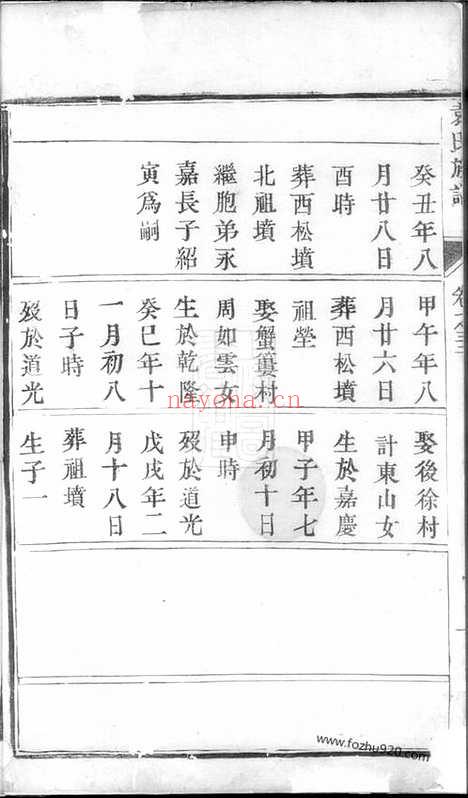 袁氏族譜
癸丑年八
月廿八日
酉時
葬西松墳
北祖墳
繼胞弟永
嘉長子紹
寅爲嗣
甲午年八
月廿六日
葬西松墳
祖塋
娶蟹簍村
周如雲女
生於乾隆
癸巳年十
一月初八
日子時
歿於道光
娶後徐村
計東山女
生於嘉慶
甲子年七
月初十日
申時
歿於道光
戊戌年二
月十八日
葬祖墳
生子一
nayona.cn
www.fozhu920.com